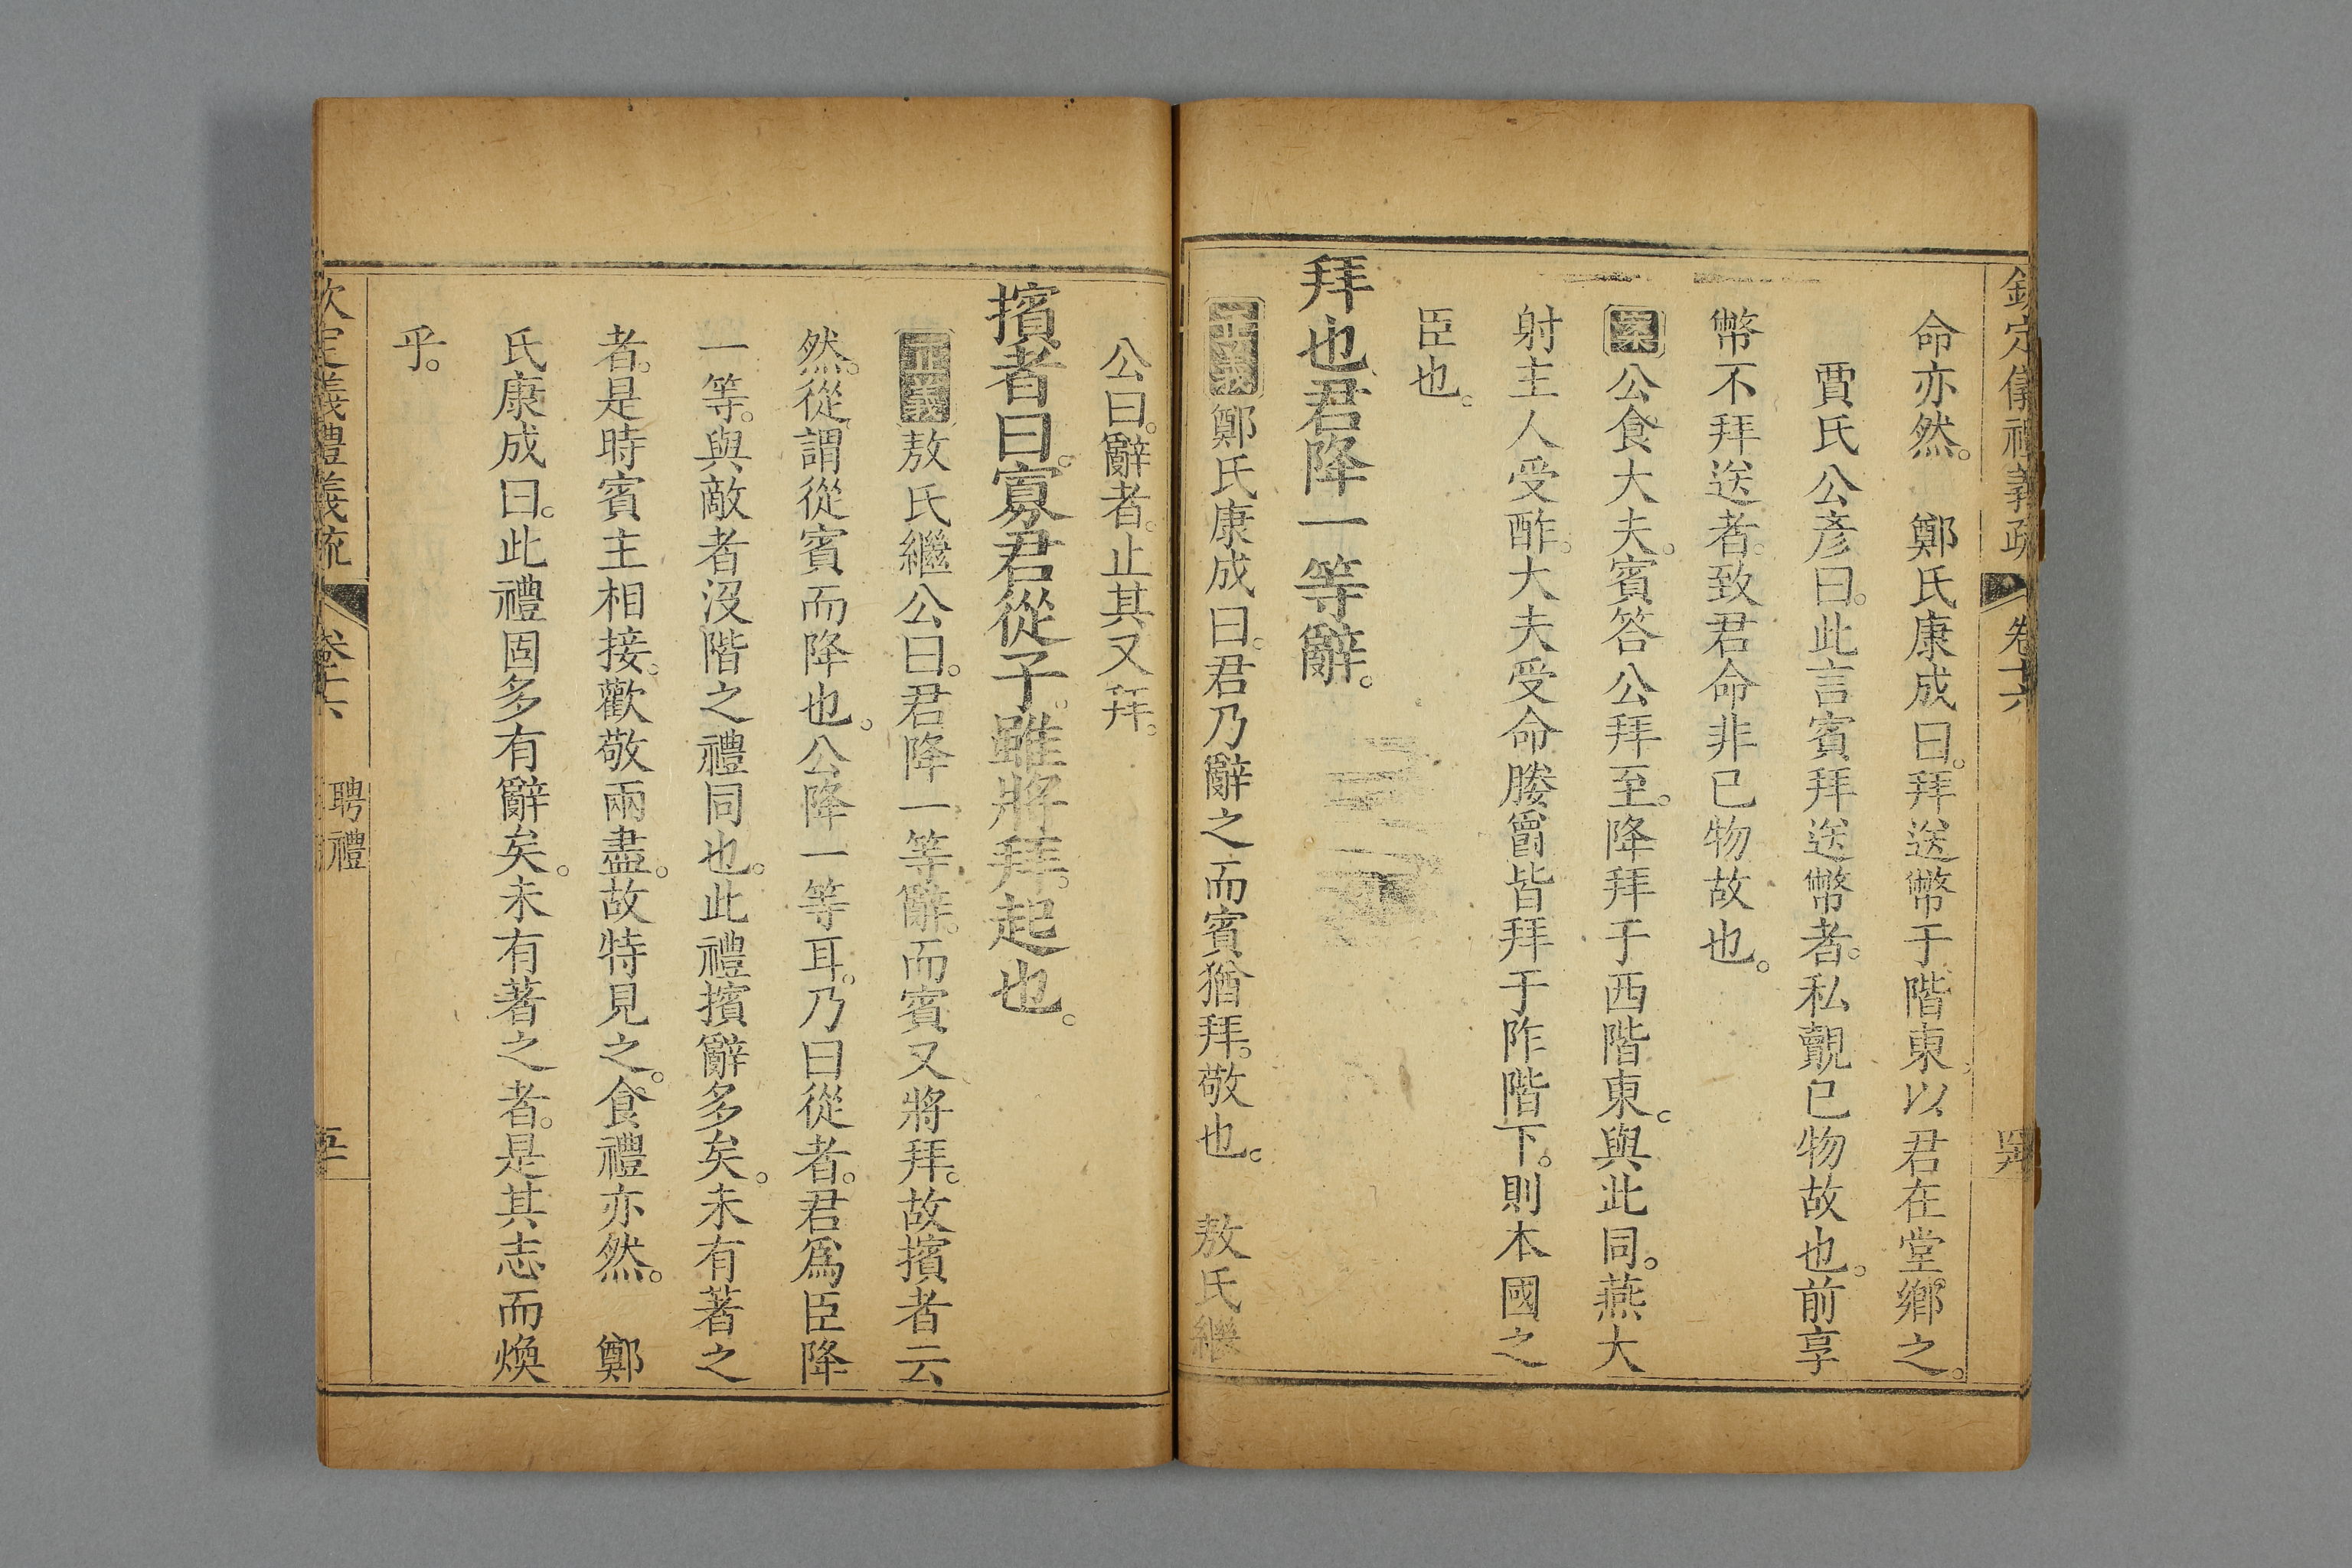 欽定儀禮義疏 卷十六
命亦然。 鄭氏康成曰。拜送幣于階東以君在堂鄉之。
賈氏公彥曰。此言賓拜送幣者。私覿己物故也。前享
幣不拜送者。致君命非己物故也。
案公食大夫。賓答公拜至。降拜于西階東。與此同。燕大
射主人受酢。大夫受命媵爵皆拜于阼階下。則本國之
臣也。
拜也君降一等辭。
正義鄭氏康成曰。君乃辭之而賓猶拜。敬也。 敖氏繼
公曰。辭者。止其又拜。
擯者曰。寡君從子。雖將拜。起也。
正義敖氏繼公曰。君降一等辭。而賓又將拜。故擯者云
然。從謂從賓而降也。公降一等耳。乃曰從者。君爲臣降
一等。與敵者沒階之禮同也。此禮擯辭多矣。未有著之
者。是時賓主相接。歡敬兩盡。故特見之。食禮亦然。 鄭
氏康成曰。此禮固多有辭矣。未有著之者。是其志而煥
乎。
欽定儀禮義疏 卷十六 聘禮